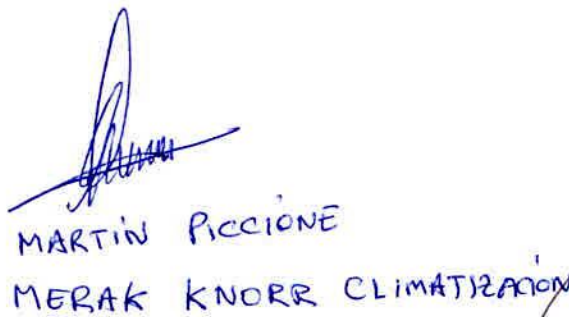 MARTIN PICCIONE
MERAK KNORR CLIMATIZACIÓN